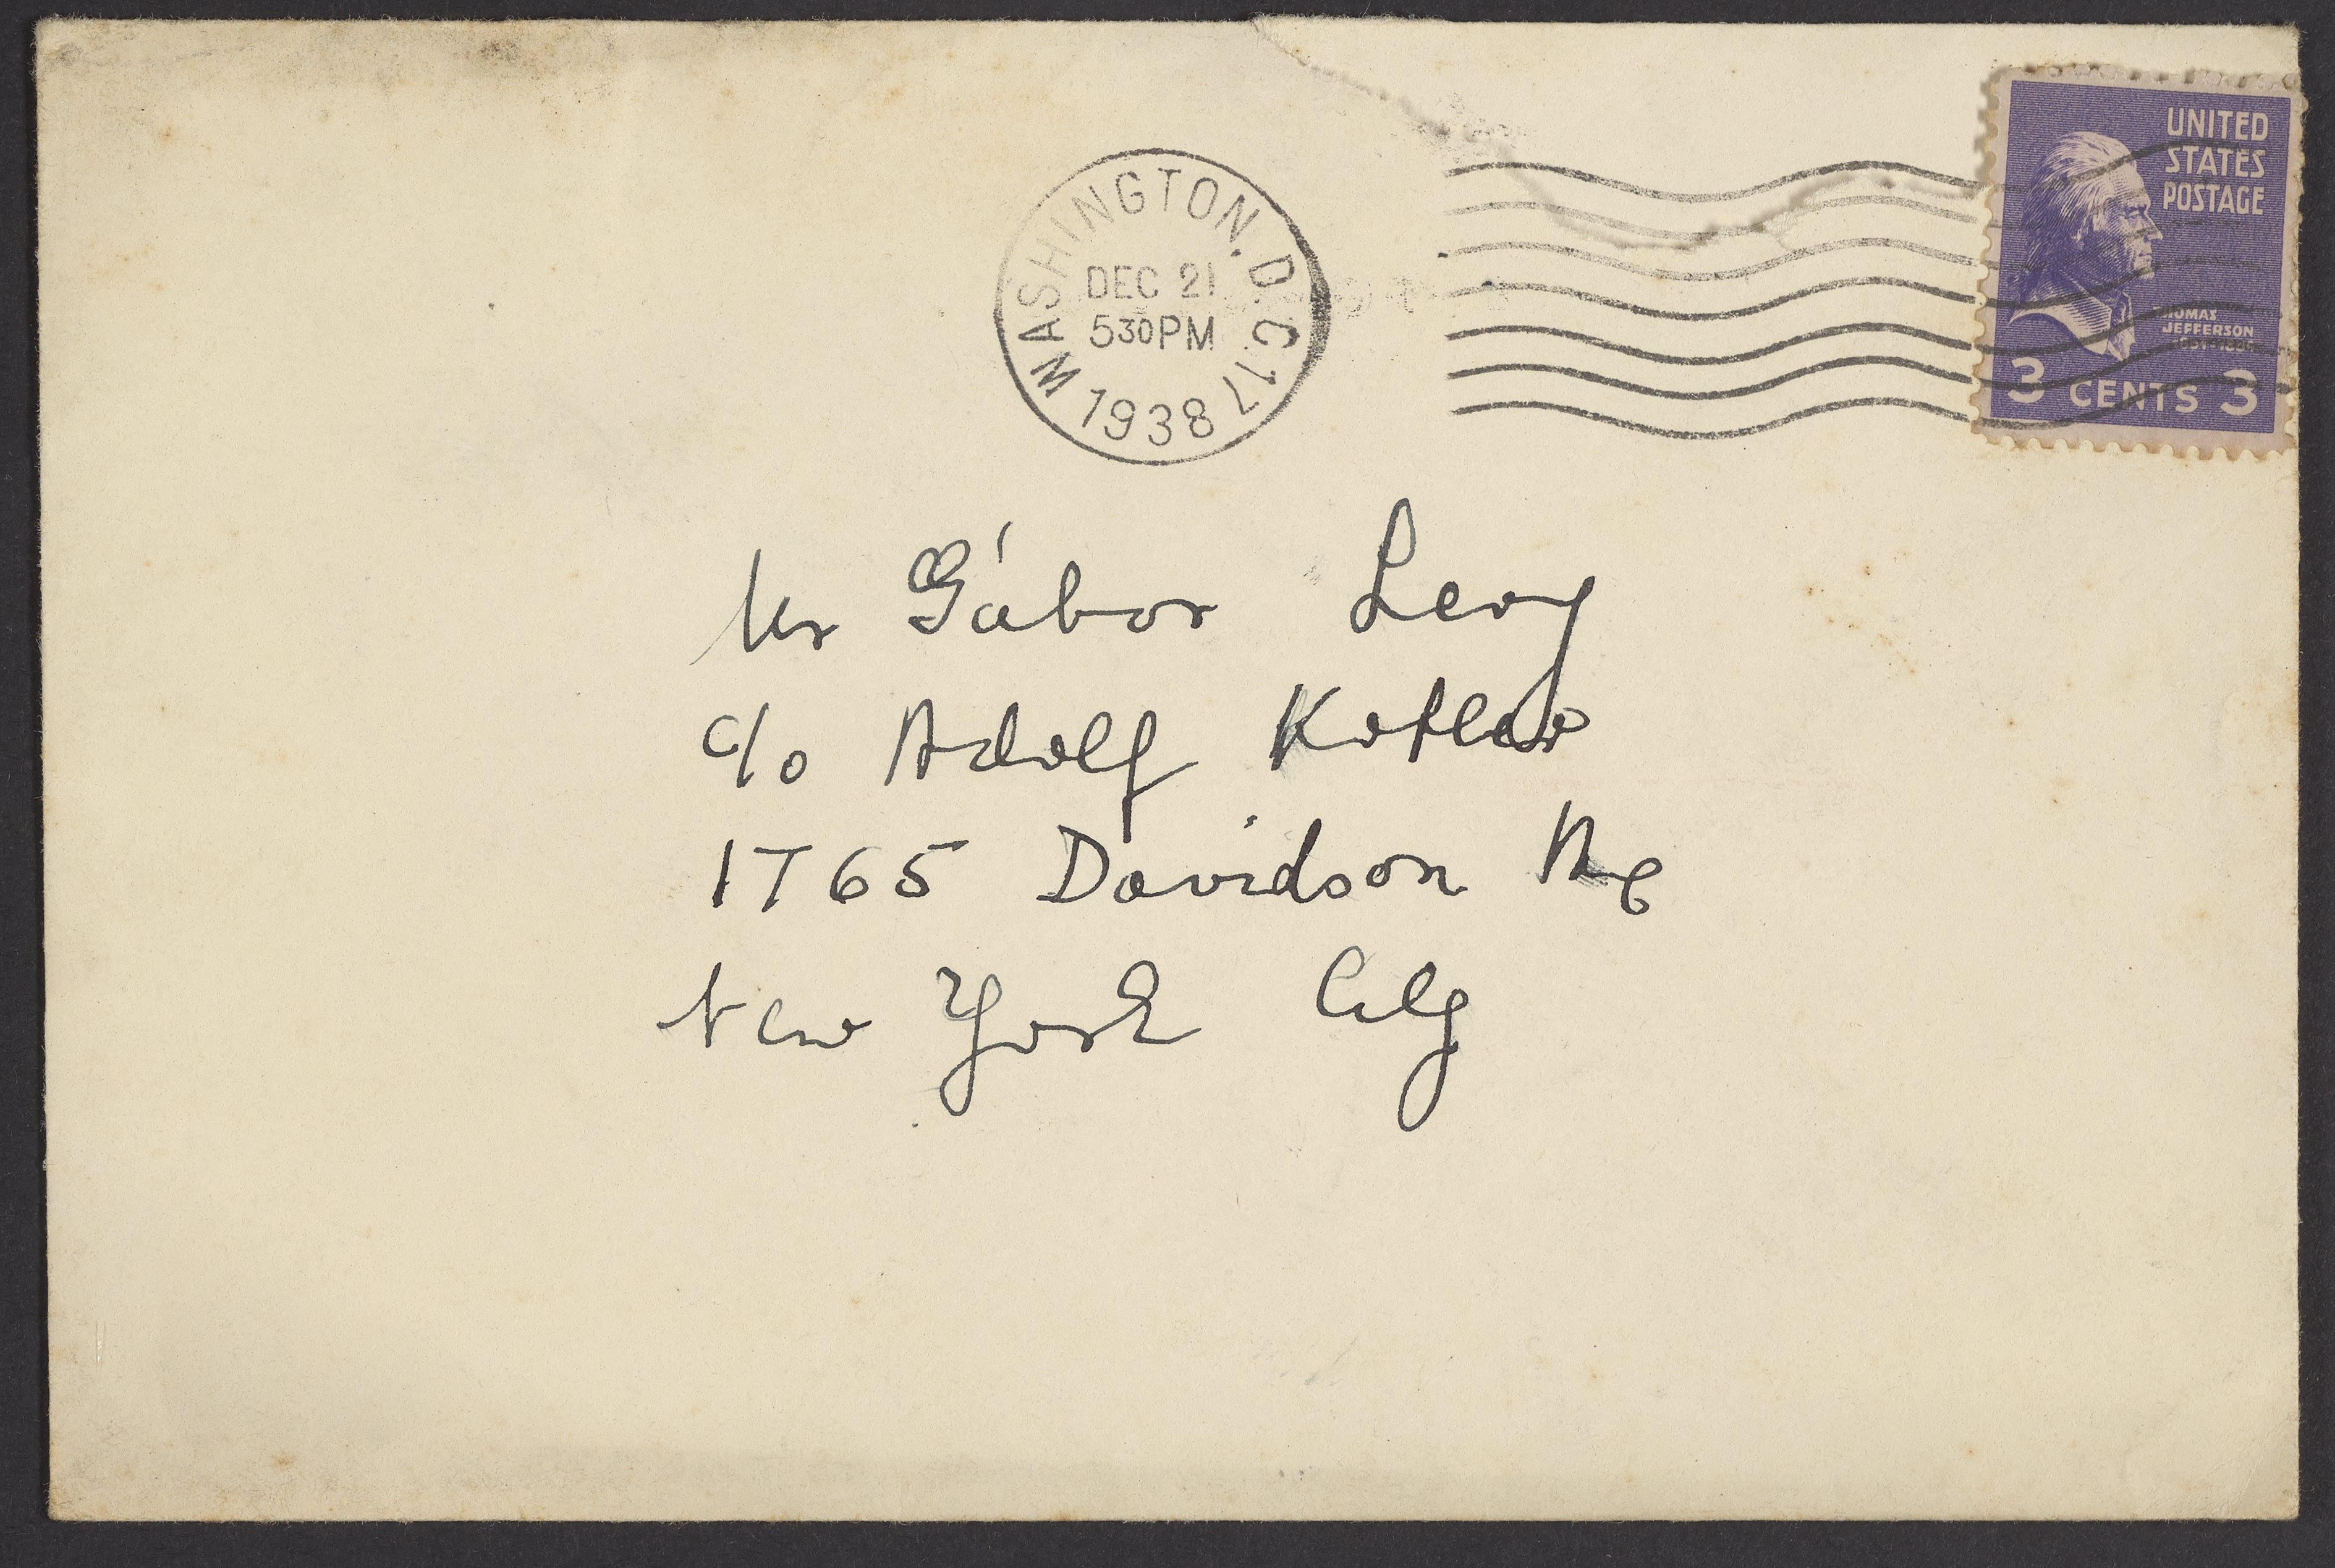 WASHINGTON. D C 17
DEC 21
530 PM
1938
UNITED
STATES
POSTAGE
THOMAS
JEFFERSON
3 CENTS 3
Mr Gábor Levy
c/o Adolf
1765 Davidson Ave
New York City